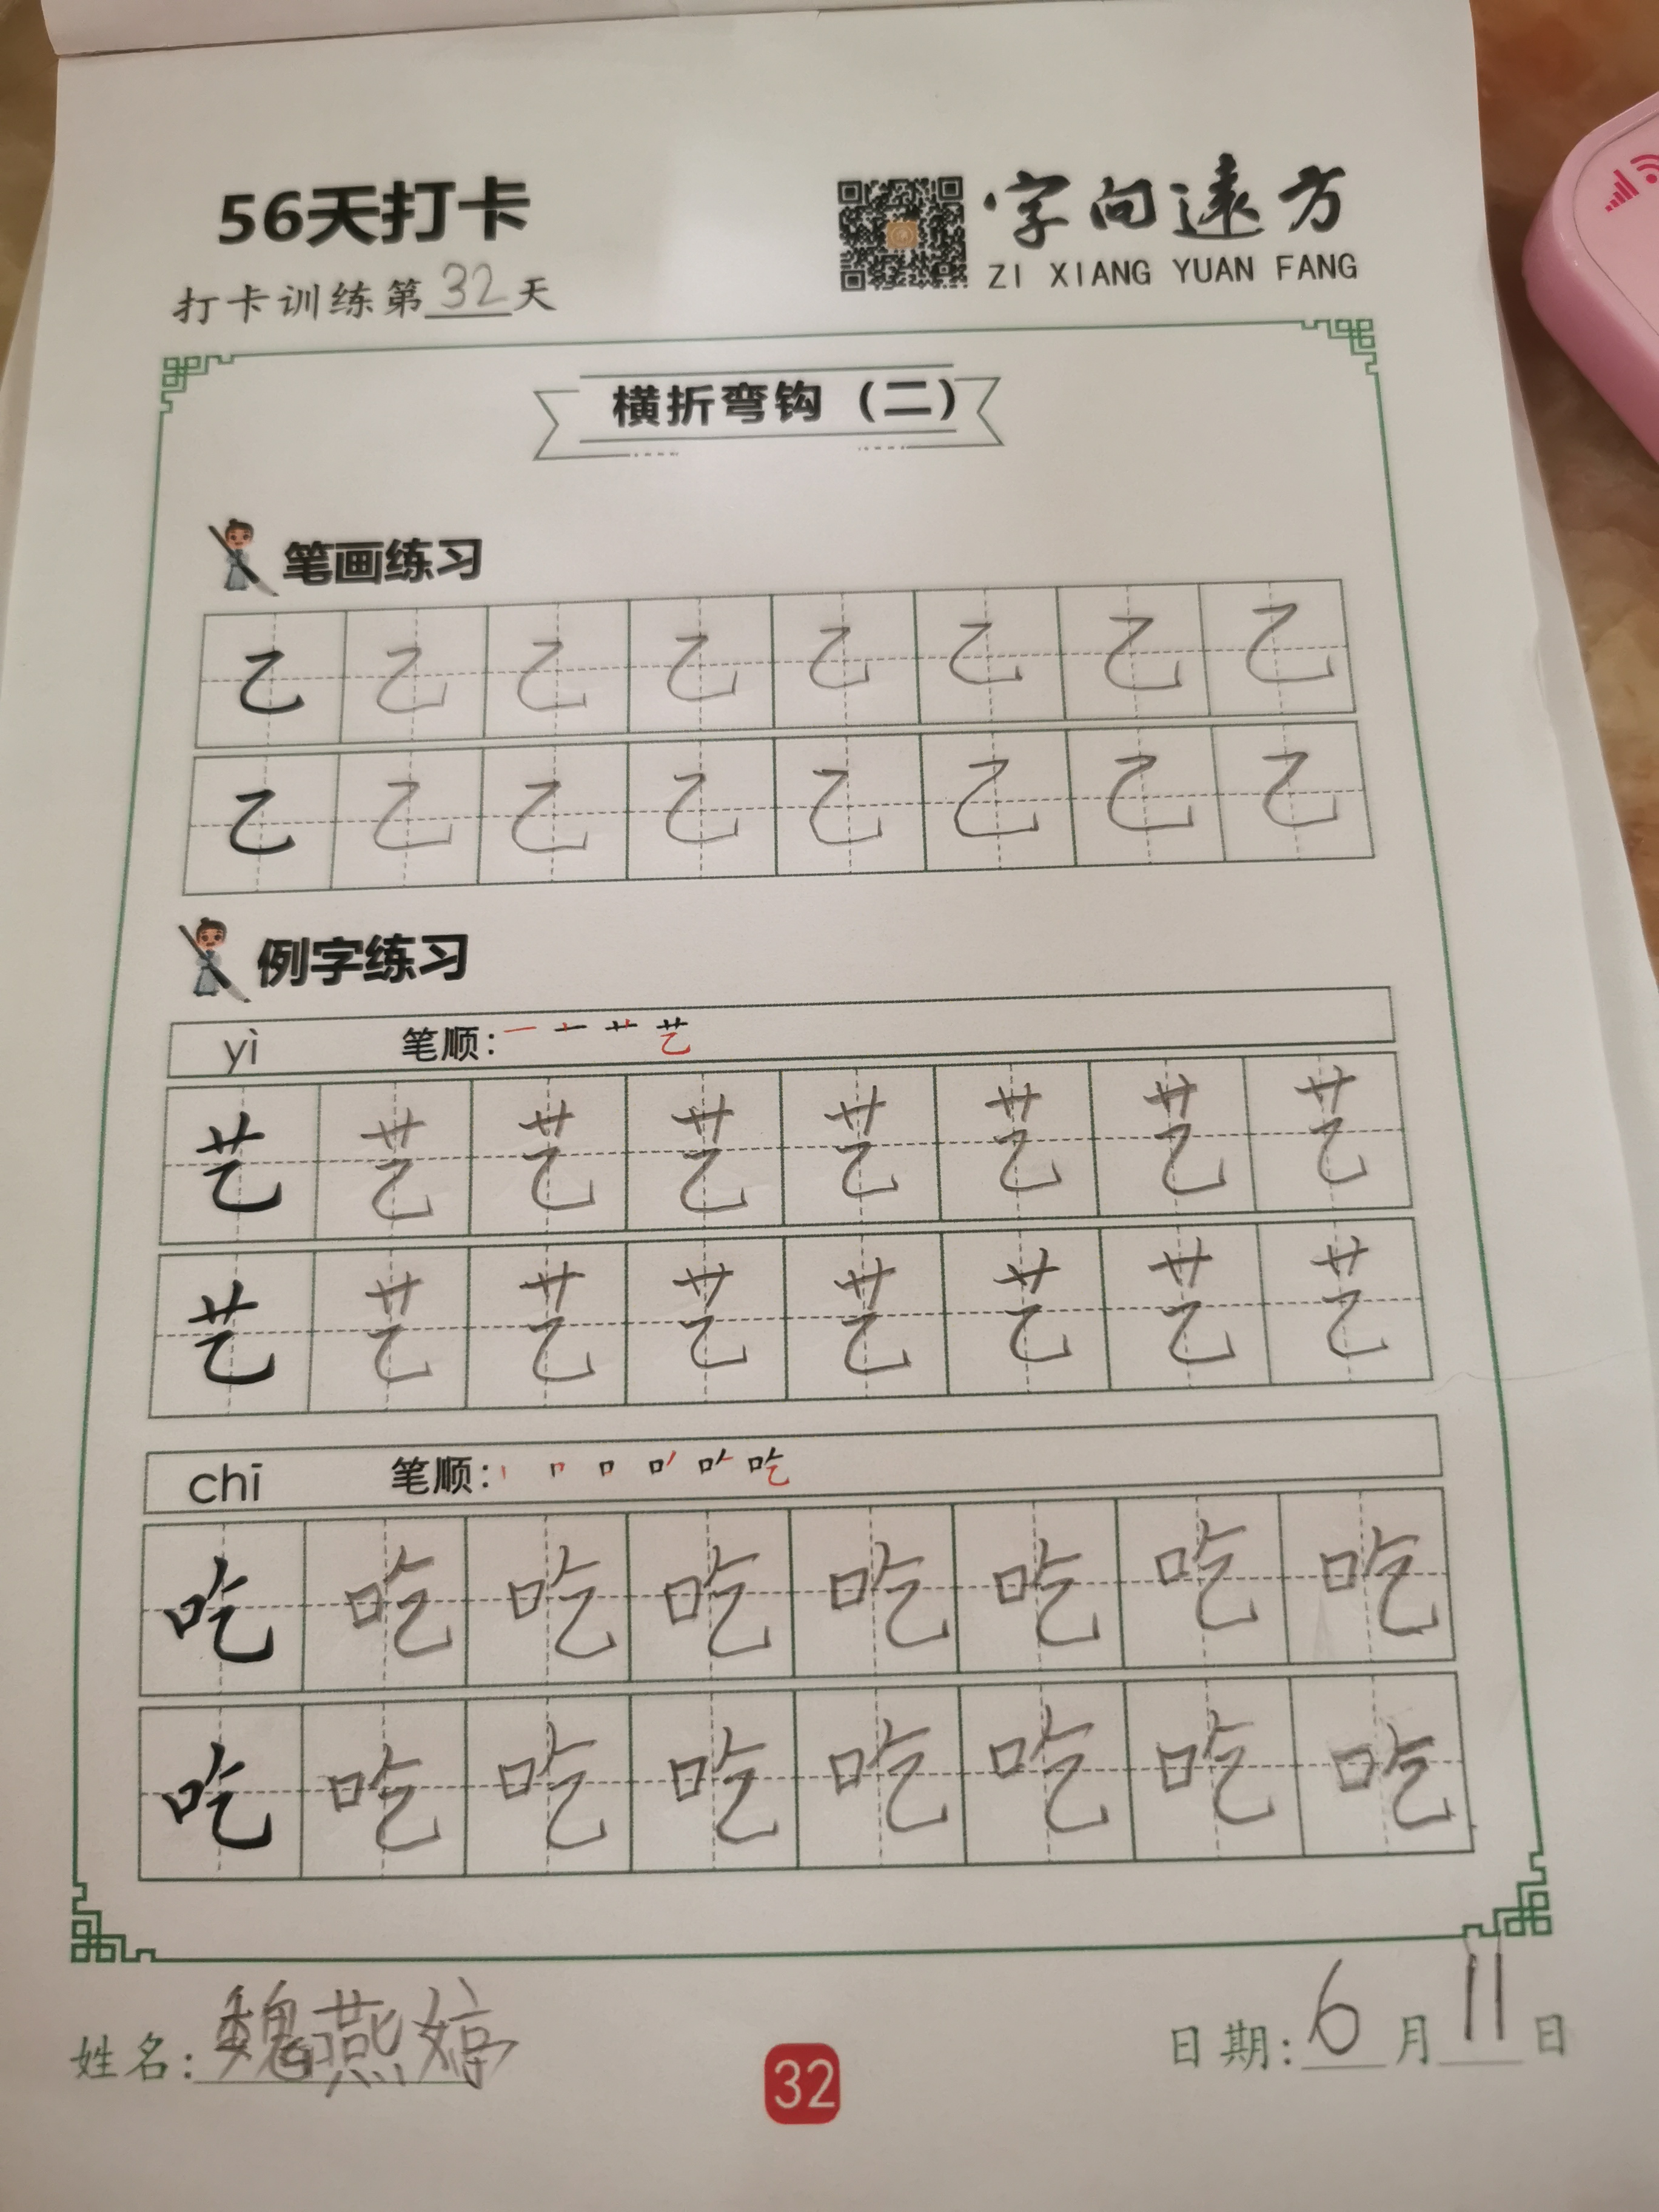 56天打卡
字向远方
ZI XIANG YUAN FANG
打卡训练第32天
横折弯钩（二）
笔画练习
乙 乙 乙 乙 乙 乙 乙 乙
乙 乙 乙 乙 乙 乙 乙 乙
例字练习
yì 笔顺: 一 十 艹 艺
艺 艺 艺 艺 艺 艺 艺 艺
艺 艺 艺 艺 艺 艺 艺 艺
chī 笔顺: 吃
吃 吃 吃 吃 吃 吃 吃 吃
吃 吃 吃 吃 吃 吃 吃 吃
姓名: 魏燕婷
32
日期: 6月11日